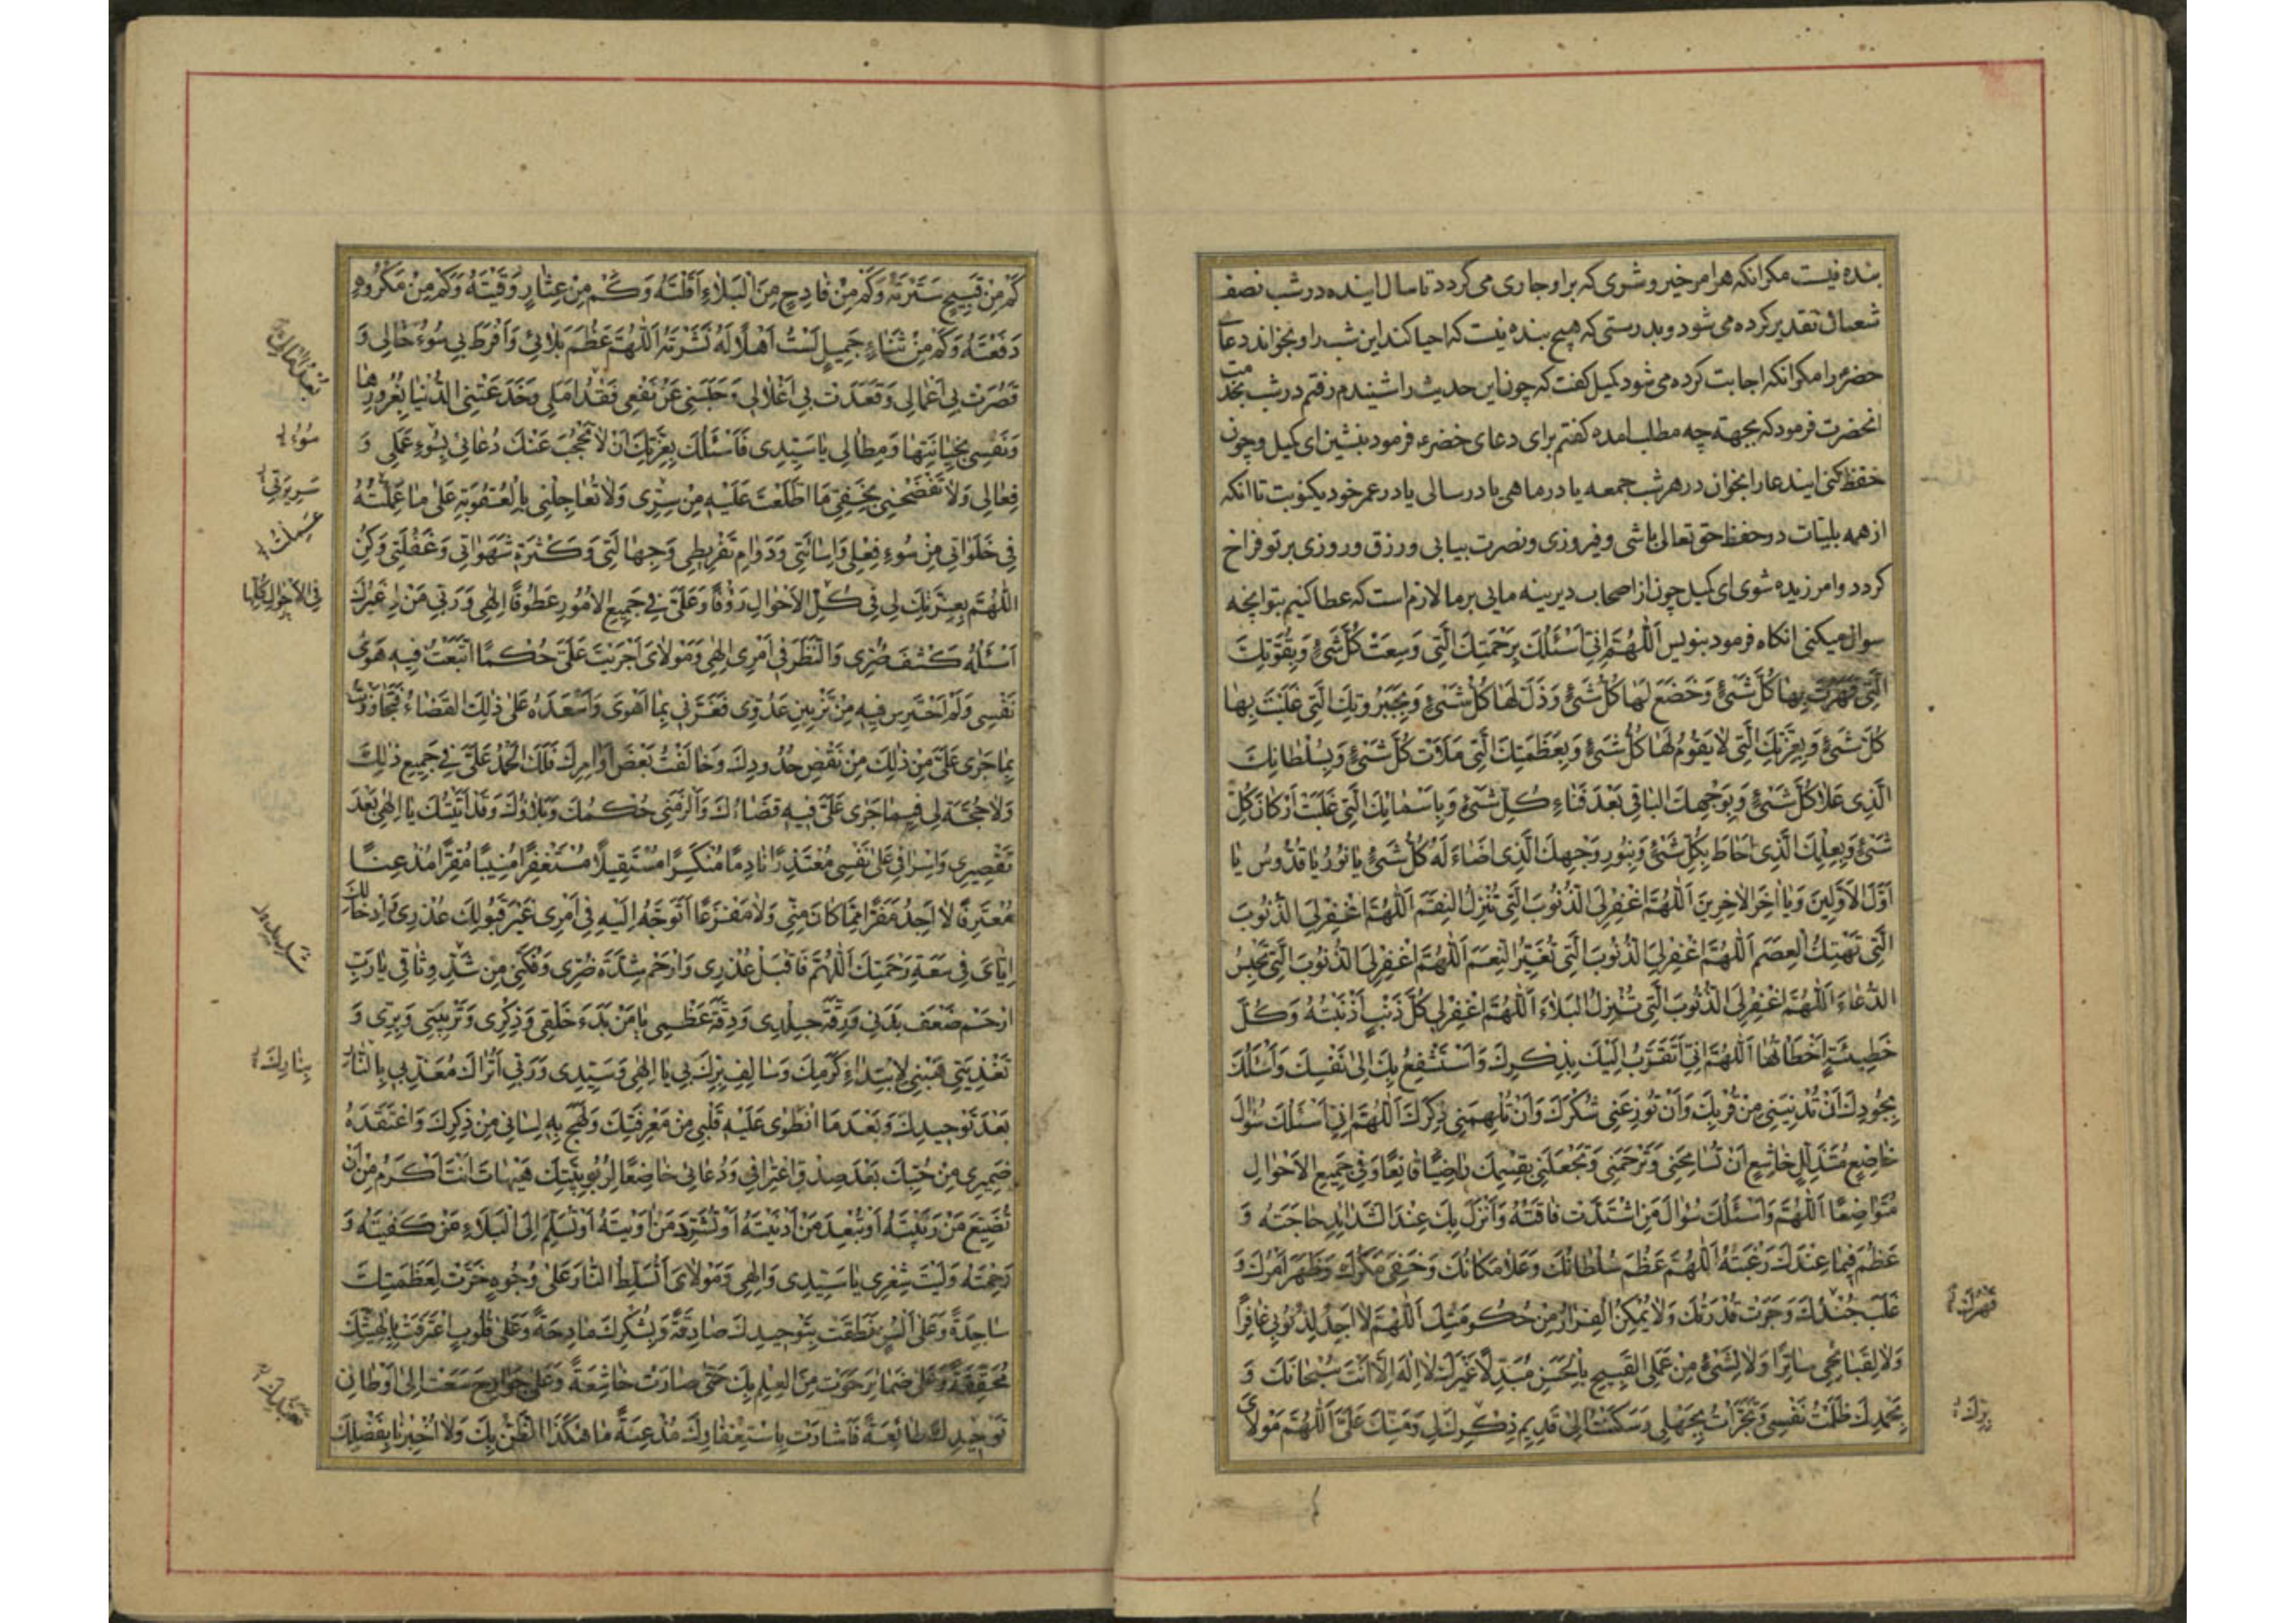 بنده نیست مکر انکه هر امر خیر و شری که بر او جاری می کردد تا سال اینده در شب نصف
شعبان تقدیر کرده می شود و بدرستی که هیچ بنده نیست که احیا کند این شب را و بخواند دعای
خضر را مکر انکه اجابت کرده می شود کمیل کفت که چون این حدیث را شنیدم رفتم در شب بخدمت
انحضرت فرمود که بجهة چه مطلب امده کفتم برای دعای خضر فرمود بنشین ای کمیل و چون
حفظ کنی ایندعا را بخوان در هر شب جمعه یا در ماهی یا در سالی یا در عمر خود یکنوبت تا انکه
از همه بلیّات در حفظ حق تعالی باشی و فیروزی و نصرت بیابی و رزق و روزی بر تو فراخ
کردد و امرزیده شوی ای کمیل چون از اصحاب دیرینه مایی بر ما لازم است که عطا کنیم بتو انچه
سوال میکنی انکاه فرمود بنویس اَللّٰهُمَّ اِنّی اَسْئَلُكَ بِرَحْمَتِكَ الَّتِی وَسِعَتْ كُلَّ شَیْءٍ وَبِقُوَّتِكَ
الَّتِی قَهَرْتَ بِهَا كُلَّ شَیْءٍ وَخَضَعَ لَهَا كُلُّ شَیْءٍ وَذَلَّ لَهَا كُلُّ شَیْءٍ وَبِجَبَرُوتِكَ الَّتِی غَلَبْتَ بِهَا
كُلَّ شَیْءٍ وَبِعِزَّتِكَ الَّتِی لَا یَقُومُ لَهَا كُلُّ شَیْءٍ وَبِعَظَمَتِكَ الَّتِی مَلَأَتْ كُلَّ شَیْءٍ وَبِسُلْطَانِكَ
الَّذِی عَلَا كُلَّ شَیْءٍ وَبِوَجْهِكَ الْبَاقِی بَعْدَ فَنَاءِ كُلِّ شَیْءٍ وَبِاَسْمَائِكَ الَّتِی غَلَبَتْ اَرْكَانَ كُلِّ
شَیْءٍ وَبِعِلْمِكَ الَّذِی اَحَاطَ بِكُلِّ شَیْءٍ وَبِنُورِ وَجْهِكَ الَّذِی اَضَاءَ لَهُ كُلُّ شَیْءٍ یَا نُورُ یَا قُدُّوسُ یَا
اَوَّلَ الْاَوَّلِینَ وَیَا اٰخِرَ الْاٰخِرِینَ اَللّٰهُمَّ اغْفِرْ لِیَ الذُّنُوبَ الَّتِی تُنْزِلُ النِّقَمَ اَللّٰهُمَّ اغْفِرْ لِیَ الذُّنُوبَ
الَّتِی تَهْتِكُ الْعِصَمَ اَللّٰهُمَّ اغْفِرْ لِیَ الذُّنُوبَ الَّتِی تُغَیِّرُ النِّعَمَ اَللّٰهُمَّ اغْفِرْ لِیَ الذُّنُوبَ الَّتِی تَحْبِسُ
الدُّعَاءَ اَللّٰهُمَّ اغْفِرْ لِیَ الذُّنُوبَ الَّتِی تُنْزِلُ الْبَلَاءَ اَللّٰهُمَّ اغْفِرْ لِی كُلَّ ذَنْبٍ اَذْنَبْتُهُ وَكُلَّ
خَطِیئَةٍ اَخْطَاْتُهَا اَللّٰهُمَّ اِنّی اَتَقَرَّبُ اِلَیْكَ بِذِكْرِكَ وَاَسْتَشْفِعُ بِكَ اِلٰی نَفْسِكَ وَاَسْئَلُكَ
بِجُودِكَ اَنْ تُدْنِیَنِی مِنْ قُرْبِكَ وَاَنْ تُوزِعَنِی شُكْرَكَ وَاَنْ تُلْهِمَنِی ذِكْرَكَ اَللّٰهُمَّ اِنّی اَسْئَلُكَ سُؤَالَ
خَاضِعٍ مُتَذَلِّلٍ خَاشِعٍ اَنْ تُسَامِحَنِی وَتَرْحَمَنِی وَتَجْعَلَنِی بِقِسْمِكَ رَاضِیًا قَانِعًا وَفِی جَمِیعِ الْاَحْوَالِ
مُتَوَاضِعًا اَللّٰهُمَّ وَاَسْئَلُكَ سُؤَالَ مَنِ اشْتَدَّتْ فَاقَتُهُ وَاَنْزَلَ بِكَ عِنْدَ الشَّدَائِدِ حَاجَتَهُ وَ
عَظُمَ فِیمَا عِنْدَكَ رَغْبَتُهُ اَللّٰهُمَّ عَظُمَ سُلْطَانُكَ وَعَلَا مَكَانُكَ وَخَفِیَ مَكْرُكَ وَظَهَرَ اَمْرُكَ وَ
غَلَبَ جُنْدُكَ وَجَرَتْ قُدْرَتُكَ وَلَا یُمْكِنُ الْفِرَارُ مِنْ حُكُومَتِكَ اَللّٰهُمَّ لَا اَجِدُ لِذُنُوبِی غَافِرًا
قَهْرُكَ
وَلَا لِقَبَائِحِی سَاتِرًا وَلَا لِشَیْءٍ مِنْ عَمَلِیَ الْقَبِیحِ بِالْحَسَنِ مُبَدِّلًا غَیْرَكَ لَا اِلٰهَ اِلَّا اَنْتَ سُبْحَانَكَ وَ
بِحَمْدِكَ ظَلَمْتُ نَفْسِی وَتَجَرَّاْتُ بِجَهْلِی وَسَكَنْتُ اِلٰی قَدِیمِ ذِكْرِكَ لِی وَمَنِّكَ عَلَیَّ اَللّٰهُمَّ مَوْلَایَ
كَمْ مِنْ قَبِیحٍ سَتَرْتَهُ وَكَمْ مِنْ فَادِحٍ مِنَ الْبَلَاءِ اَقَلْتَهُ وَكَمْ مِنْ عِثَارٍ وَقَیْتَهُ وَكَمْ مِنْ مَكْرُوهٍ
دَفَعْتَهُ وَكَمْ مِنْ ثَنَاءٍ جَمِیلٍ لَسْتُ اَهْلًا لَهُ نَشَرْتَهُ اَللّٰهُمَّ عَظُمَ بَلَائِی وَاَفْرَطَ بِی سُوءُ حَالِی وَ
قَصُرَتْ بِی اَعْمَالِی وَقَعَدَتْ بِی اَغْلَالِی وَحَبَسَنِی عَنْ نَفْعِی بُعْدُ اَمَلِی وَخَدَعَتْنِی الدُّنْیَا بِغُرُورِهَا
وَنَفْسِی بِخِیَانَتِهَا وَمِطَالِی یَا سَیِّدِی فَاَسْئَلُكَ بِعِزَّتِكَ اَنْ لَا تَحْجُبَ عَنْكَ دُعَائِی بِسُوءِ عَمَلِی وَ
سُوءُ
فِعَالِی وَلَا تَفْضَحْنِی بِخَفِیِّ مَا اطَّلَعْتَ عَلَیْهِ مِنْ سِرِّی وَلَا تُعَاجِلْنِی بِالْعُقُوبَةِ عَلٰی مَا عَمِلْتُهُ
سَرِیرَتِی
عَمِلْتُ
فِی خَلَوَاتِی مِنْ سُوءِ فِعْلِی وَاِسَائَتِی وَدَوَامِ تَفْرِیطِی وَجَهَالَتِی وَكَثْرَةِ شَهَوَاتِی وَغَفْلَتِی وَكُنِ
اللّٰهُمَّ بِعِزَّتِكَ لِی فِی كُلِّ الْاَحْوَالِ رَؤُفًا وَعَلَیَّ فِی جَمِیعِ الْاُمُورِ عَطُوفًا اِلٰهِی وَرَبِّی مَنْ لِی غَیْرُكَ
فِی الْاَحْوَالِ كُلِّهَا
اَسْئَلُهُ كَشْفَ ضُرِّی وَالنَّظَرَ فِی اَمْرِی اِلٰهِی وَمَوْلَایَ اَجْرَیْتَ عَلَیَّ حُكْمًا اتَّبَعْتُ فِیهِ هَوٰی
نَفْسِی وَلَمْ اَحْتَرِسْ فِیهِ مِنْ تَزْیِینِ عَدُوِّی فَغَرَّنِی بِمَا اَهْوٰی وَاَسْعَدَهُ عَلٰی ذٰلِكَ الْقَضَاءُ فَتَجَاوَزْتُ
بِمَا جَرٰی عَلَیَّ مِنْ ذٰلِكَ مِنْ نَقْضِ حُدُودِكَ وَخَالَفْتُ بَعْضَ اَوَامِرِكَ فَلَكَ الْحَمْدُ عَلَیَّ فِی جَمِیعِ ذٰلِكَ
وَلَا حُجَّةَ لِی فِیمَا جَرٰی عَلَیَّ فِیهِ قَضَاءُكَ وَاَلْزَمَنِی حُكْمُكَ وَبَلَاؤُكَ وَقَدْ اَتَیْتُكَ یَا اِلٰهِی بَعْدَ
تَقْصِیرِی وَاِسْرَافِی عَلٰی نَفْسِی مُعْتَذِرًا نَادِمًا مُنْكَسِرًا مُسْتَقِیلًا مُسْتَغْفِرًا مُنِیبًا مُقِرًّا مُذْعِنًا
مُعْتَرِفًا لَا اَجِدُ مَفَرًّا مِمَّا كَانَ مِنِّی وَلَا مَفْزَعًا اَتَوَجَّهُ اِلَیْهِ فِی اَمْرِی غَیْرَ قَبُولِكَ عُذْرِی وَاِدْخَالِكَ
اِیَّایَ فِی سَعَةِ رَحْمَتِكَ اَللّٰهُمَّ فَاقْبَلْ عُذْرِی وَارْحَمْ شِدَّةَ ضُرِّی وَفُكَّنِی مِنْ شَدِّ وَثَاقِی یَا رَبِّ
ارْحَمْ ضَعْفَ بَدَنِی وَرِقَّةَ جِلْدِی وَدِقَّةَ عَظْمِی یَا مَنْ بَدَءَ خَلْقِی وَذِكْرِی وَتَرْبِیَتِی وَبِرِّی وَ
تَغْذِیَتِی هَبْنِی لِابْتِدَاءِ كَرَمِكَ وَسَالِفِ بِرِّكَ بِی یَا اِلٰهِی وَسَیِّدِی وَرَبِّی اَتُرَاكَ مُعَذِّبِی بِالنَّارِ
بِنَارِكَ
بَعْدَ تَوْحِیدِكَ وَبَعْدَ مَا انْطَوٰی عَلَیْهِ قَلْبِی مِنْ مَعْرِفَتِكَ وَلَهِجَ بِهِ لِسَانِی مِنْ ذِكْرِكَ وَاعْتَقَدَهُ
ضَمِیرِی مِنْ حُبِّكَ بَعْدَ صِدْقِ اعْتِرَافِی وَدُعَائِی خَاضِعًا لِرُبُوبِیَّتِكَ هَیْهَاتَ اَنْتَ اَكْرَمُ مِنْ اَنْ
تُضَیِّعَ مَنْ رَبَّیْتَهُ اَوْ تُبْعِدَ مَنْ اَدْنَیْتَهُ اَوْ تُشَرِّدَ مَنْ اٰوَیْتَهُ اَوْ تُسَلِّمَ اِلَی الْبَلَاءِ مَنْ كَفَیْتَهُ وَ
رَحِمْتَهُ وَلَیْتَ شِعْرِی یَا سَیِّدِی وَاِلٰهِی وَمَوْلَایَ اَتُسَلِّطُ النَّارَ عَلٰی وُجُوهٍ خَرَّتْ لِعَظَمَتِكَ
سَاجِدَةً وَعَلٰی اَلْسُنٍ نَطَقَتْ بِتَوْحِیدِكَ صَادِقَةً وَبِشُكْرِكَ مَادِحَةً وَعَلٰی قُلُوبٍ اعْتَرَفَتْ بِاِلٰهِیَّتِكَ
مُحَقِّقَةً وَعَلٰی ضَمَائِرَ حَوَتْ مِنَ الْعِلْمِ بِكَ حَتّٰی صَارَتْ خَاشِعَةً وَعَلٰی جَوَارِحَ سَعَتْ اِلٰی اَوْطَانِ
تَعَبُّدِكَ
تَوْحِیدِكَ طَائِعَةً فَاَشَارَتْ بِاسْتِغْفَارِكَ مُذْعِنَةً مَا هٰكَذَا الظَّنُّ بِكَ وَلَا اُخْبِرْنَا بِفَضْلِكَ